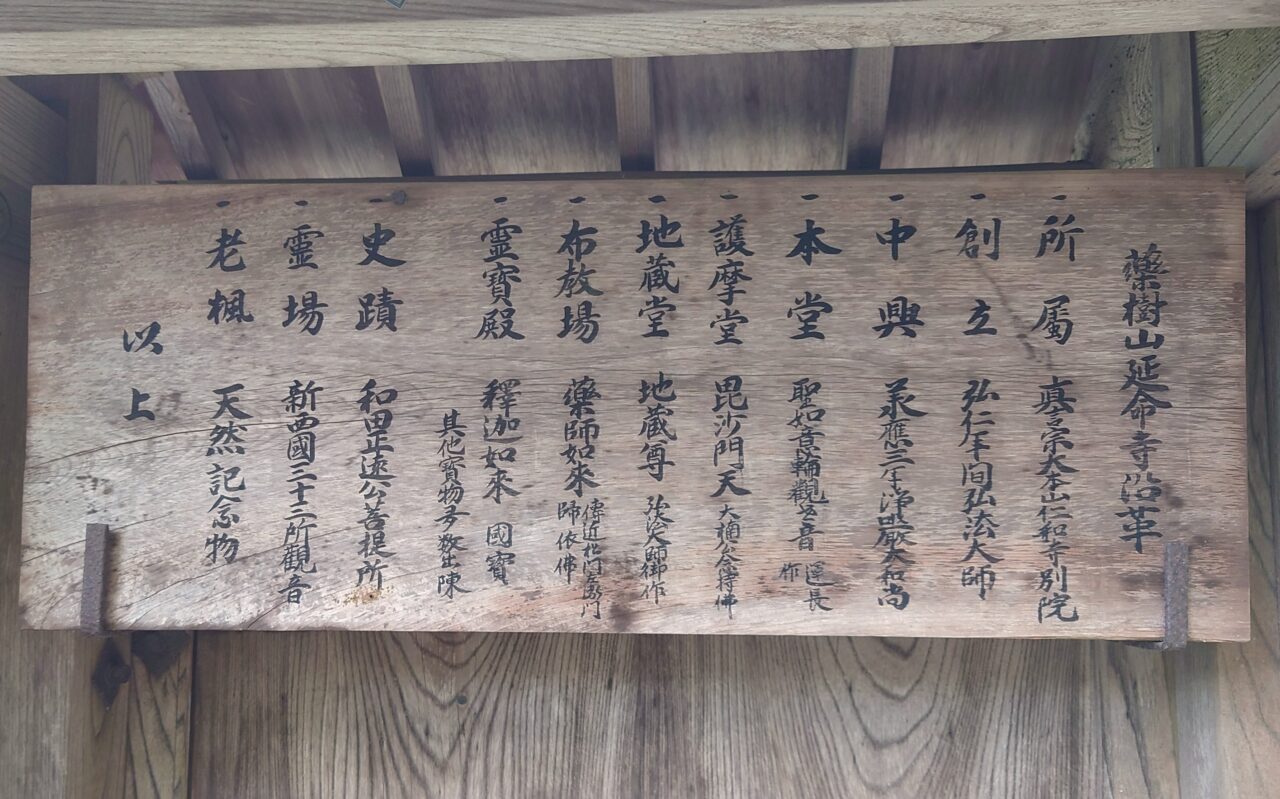 藥樹山延命寺沿革
一所屬 真言宗大本山仁和寺別院
一創立 弘仁年間弘法大師
一中興 承應三年淨嚴大和尚
一本堂 聖如意輪觀世音 運長作
一護摩堂 毘沙門天 大楠公念持佛
一地蔵堂 地蔵尊 弘法大師御作
一布教場 藥師如來 傳近松門左衛門師依佛
一靈寶殿 釋迦如來 國寶
其他寶物多数出陳
一史蹟 和田正遠公菩提所
一靈場 新西國三十三所觀音
一老楓 天然記念物
以上